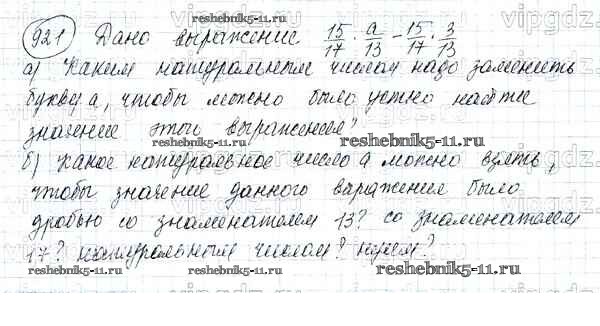 921 Дано выражение 15/17 · a/13 − 15/17 · 3/13
а) Каким натуральным числом надо заменить
букву а, чтобы можно было устно найти
значение этого выражения?
б) Какое натуральное число а можно взять,
чтобы значение данного выражения было
дробью со знаменателем 13? со знаменателем
17? натуральным числом? нулем?
reshebnik5-11.ru
reshebnik5-11.ru
reshebnik5-11.ru
reshebnik5-11.ru
reshebnik5-11.ru
vipgdz